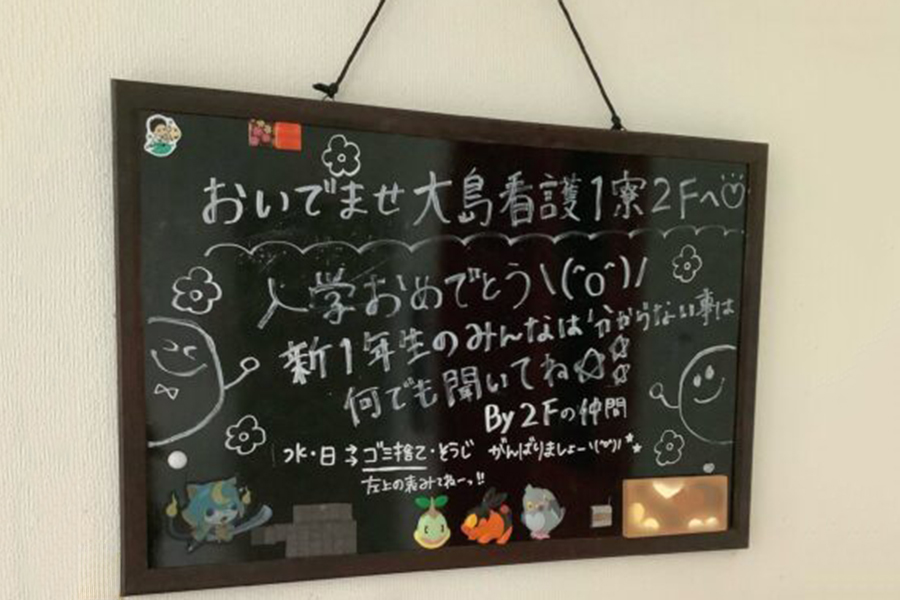 おいでませ大島看護1寮2Fへ
入学おめでとう\(^o^)/
新1年生のみんなは分からない事は
何でも聞いてね☆☆☆
By 2Fの仲間
水・日 ⇒ ゴミ捨て・そうじ がんばりましょー\(^^)/
左上の表みてねーっ!!